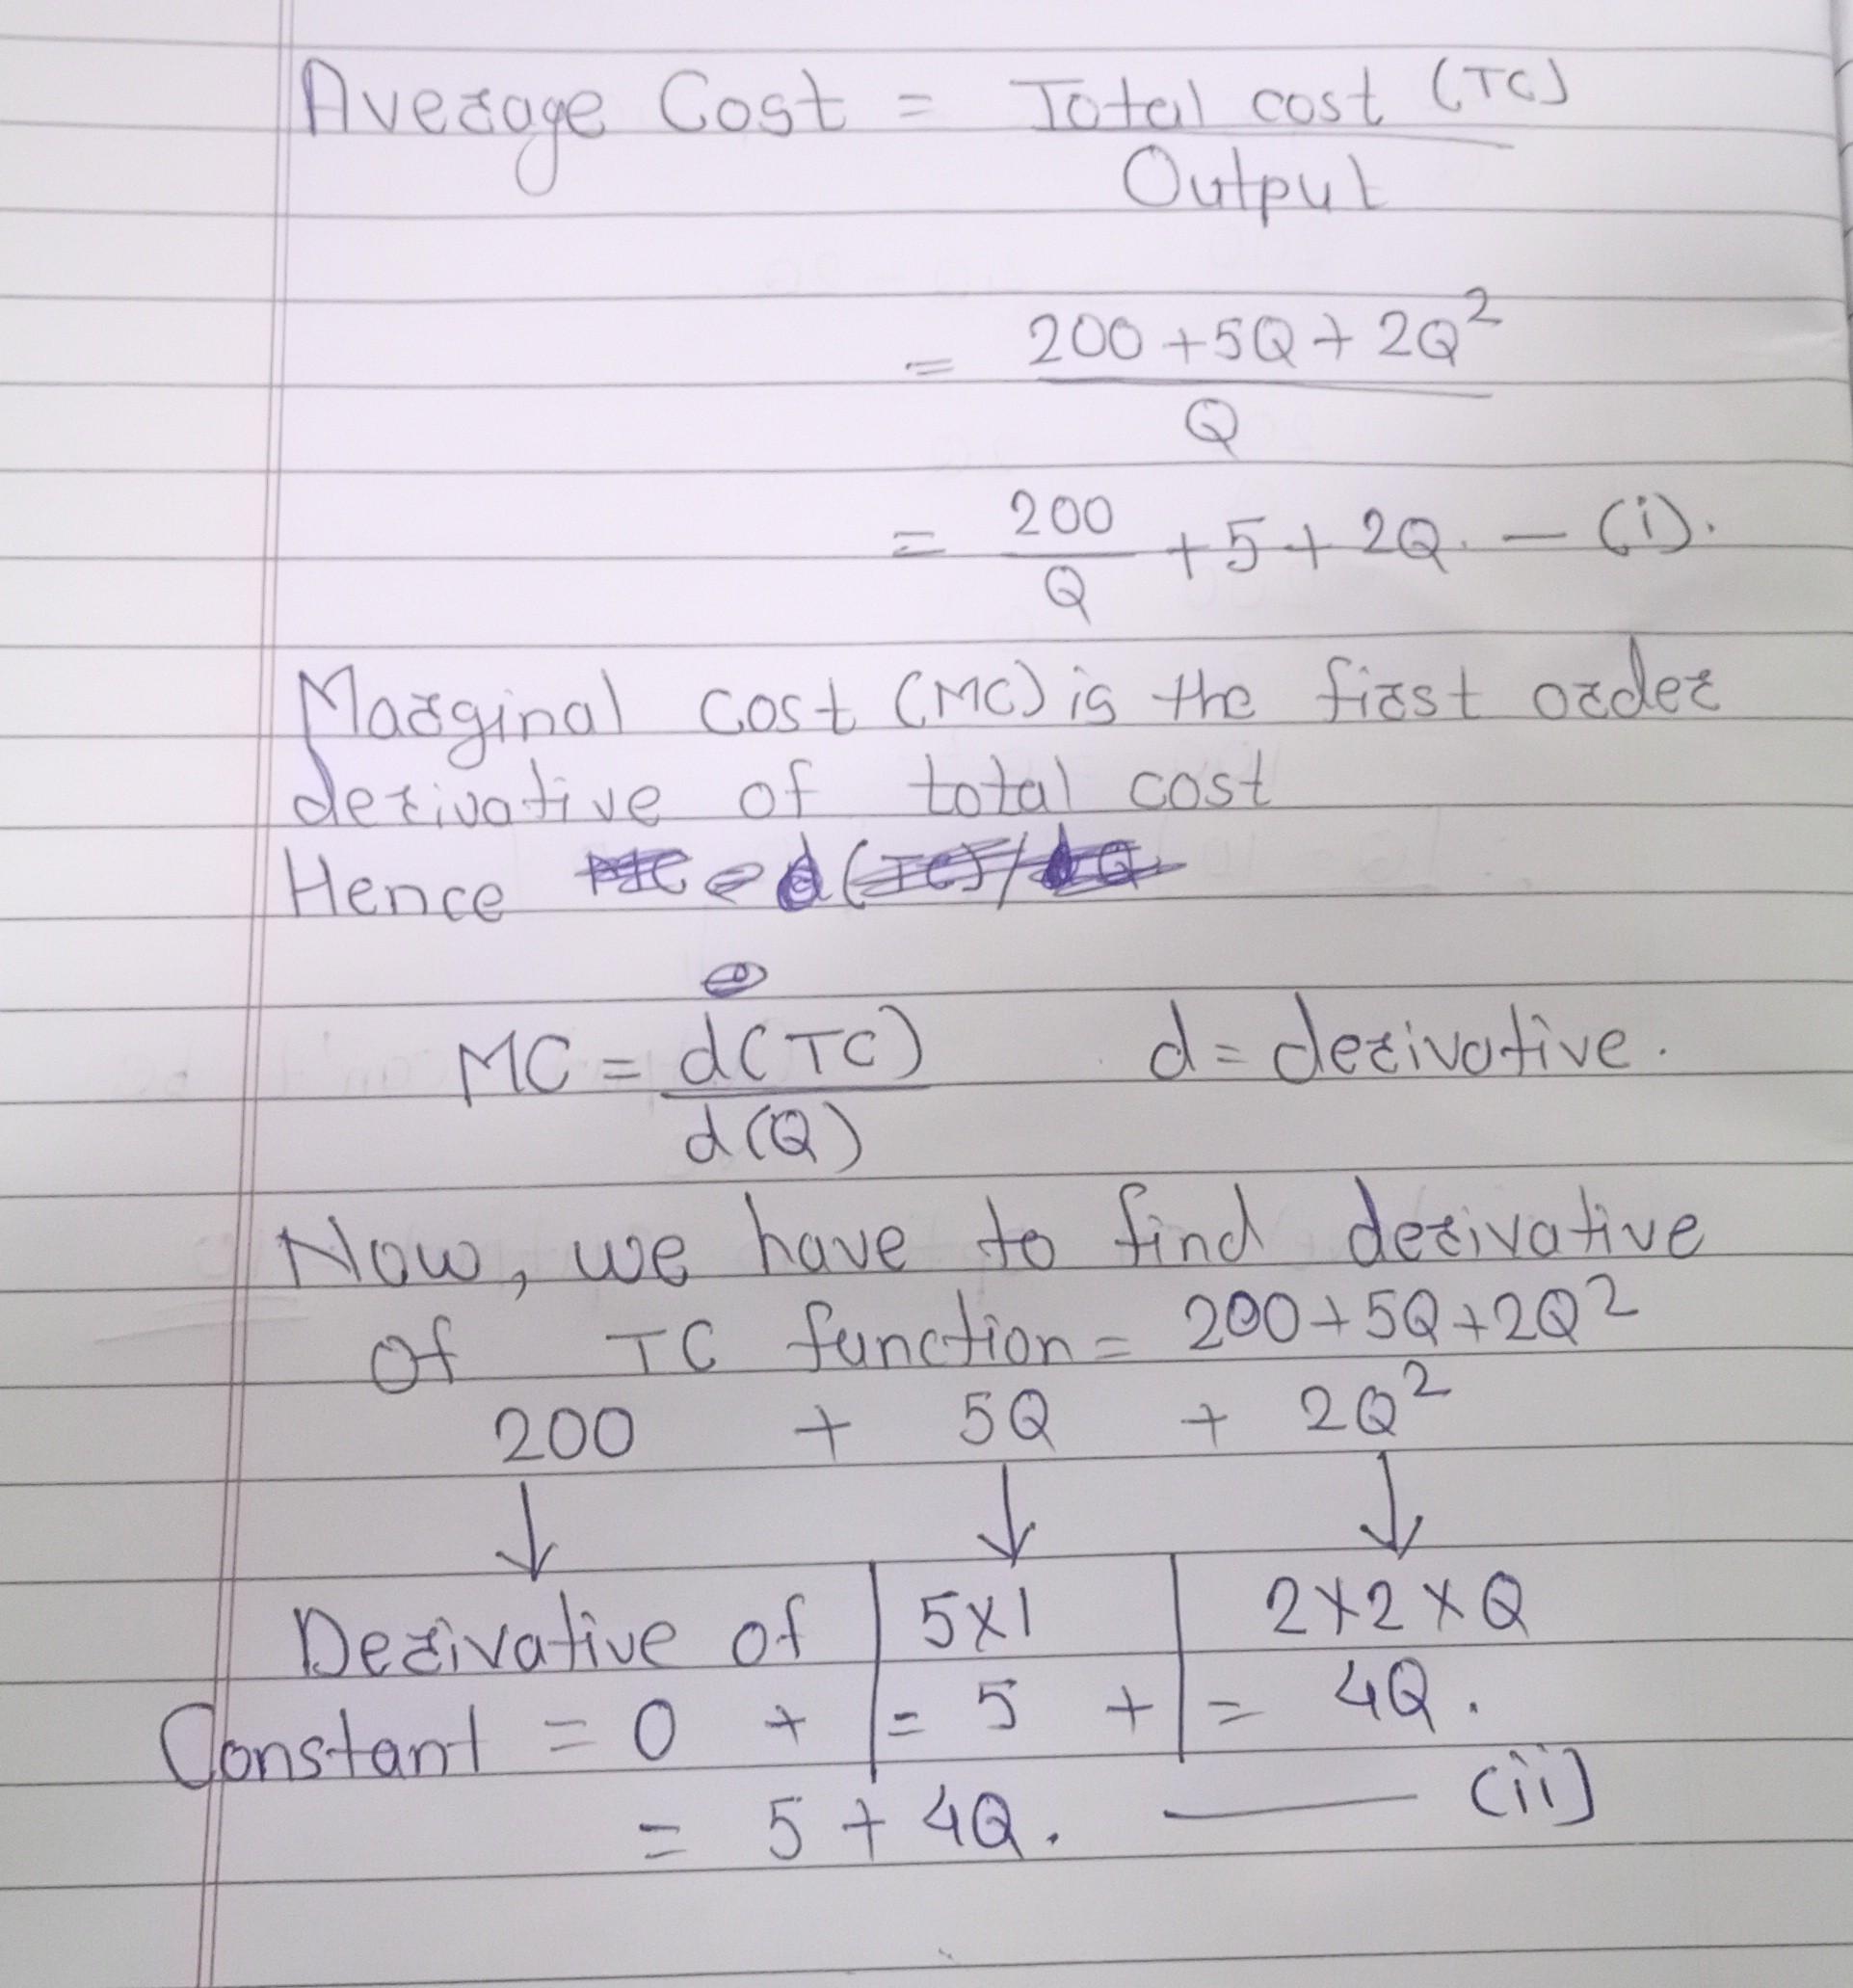 Average Cost = Total cost (TC)
Output
= 200 + 5Q + 2Q²
Q
= 200 + 5 + 2Q. — (i).
Q
Marginal cost (MC) is the first order
derivative of total cost
Hence
MC = d(TC) d = derivative.
d(Q)
Now, we have to find derivative
Of TC function = 200 + 5Q + 2Q²
200 + 5Q + 2Q²
↓ ↓ ↓
Derivative of | 5x1 | 2x2xQ
Constant = 0 + | = 5 + | = 4Q.
= 5 + 4Q. — (ii)